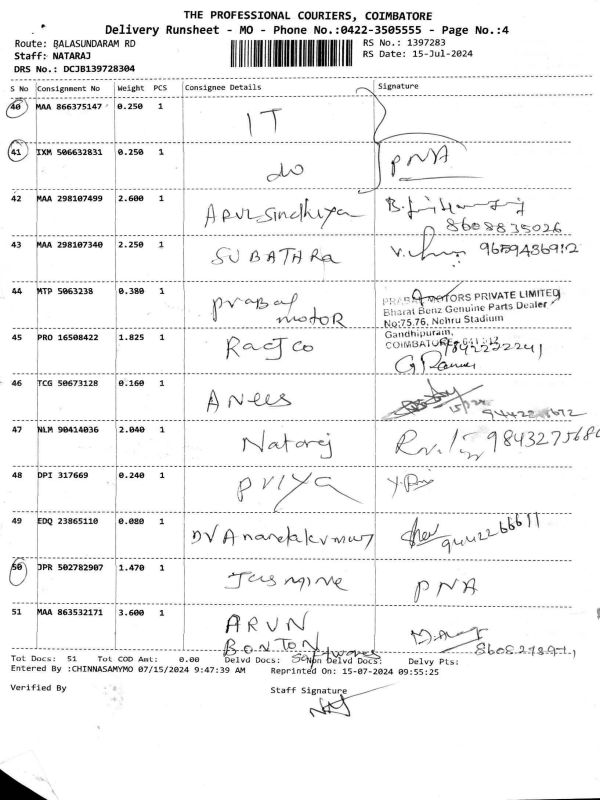 THE PROFESSIONAL COURIERS, COIMBATORE
Delivery Runsheet - MO - Phone No.:0422-3505555 - Page No.:4
Route: BALASUNDARAM RD RS No.: 1397283
Staff: NATARAJ RS Date: 15-Jul-2024
DRS No.: DCJB139728304
S No Consignment No Weight PCS Consignee Details Signature
40 MAA 866375147 0.250 1 IT
41 IXM 506632831 0.250 1 do PNA
42 MAA 298107499 2.600 1 ARUL Sindhiya
8608835026
43 MAA 298107340 2.250 1 SUBATHRA 9659486912
44 MTP 5063238 0.380 1 prabal motor
PRABAL MOTORS PRIVATE LIMITED
Bharat Benz Genuine Parts Dealer
No:75,76, Nehru Stadium
Gandhipuram,
COIMBATORE
45 PRO 16508422 1.825 1
46 TCG 50673128 0.160 1 ANees
47 NLM 90414036 2.040 1 Nataraj
48 DPI 317669 0.240 1 PRIYA
49 EDQ 23865110 0.080 1 DV Anandakumar
50 JPR 502782907 1.470 1 Jasmine PNA
51 MAA 863532171 3.600 1 ARUN
BONTON Softwares
Tot Docs: 51 Tot COD Amt: 0.00 Delvd Docs: Non Delvd Docs: Delvy Pts:
Entered By :CHINNASAMYMO 07/15/2024 9:47:39 AM Reprinted On: 15-07-2024 09:55:25
Verified By Staff Signature